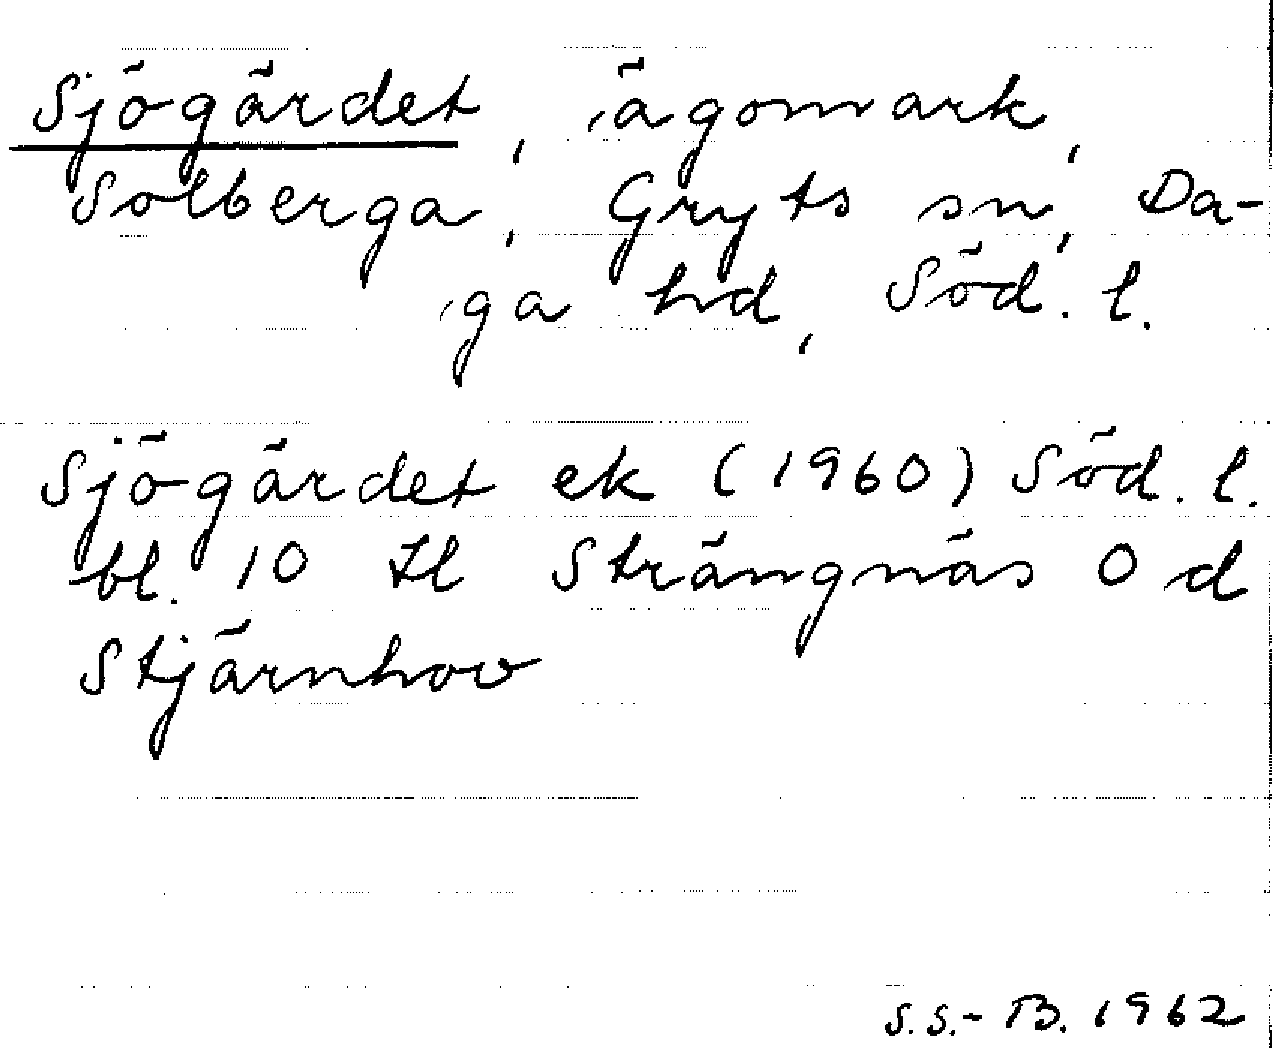 Sjögärdet, ägomark,
Solberga, Gryts sn, Da-
ga hd, Söd. l.
Sjögärdet ek (1960) Söd. l.
bl. 10 tl Strängnäs O d
Stjärnhov
S.S.-B. 1962